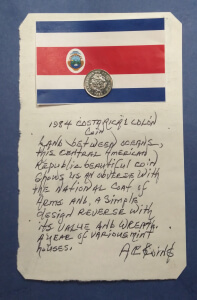 1984 COSTA RICA 1 COLON
COIN
LAND between OCEANS,
this CENTRAL AMERICAN
Republic beautiful coin
shows us an obverse with
the NATIONAL COAT of
ARMS AND, A Simple
design Reverse with
its VALUE and WREATH.
of various mint
houses.